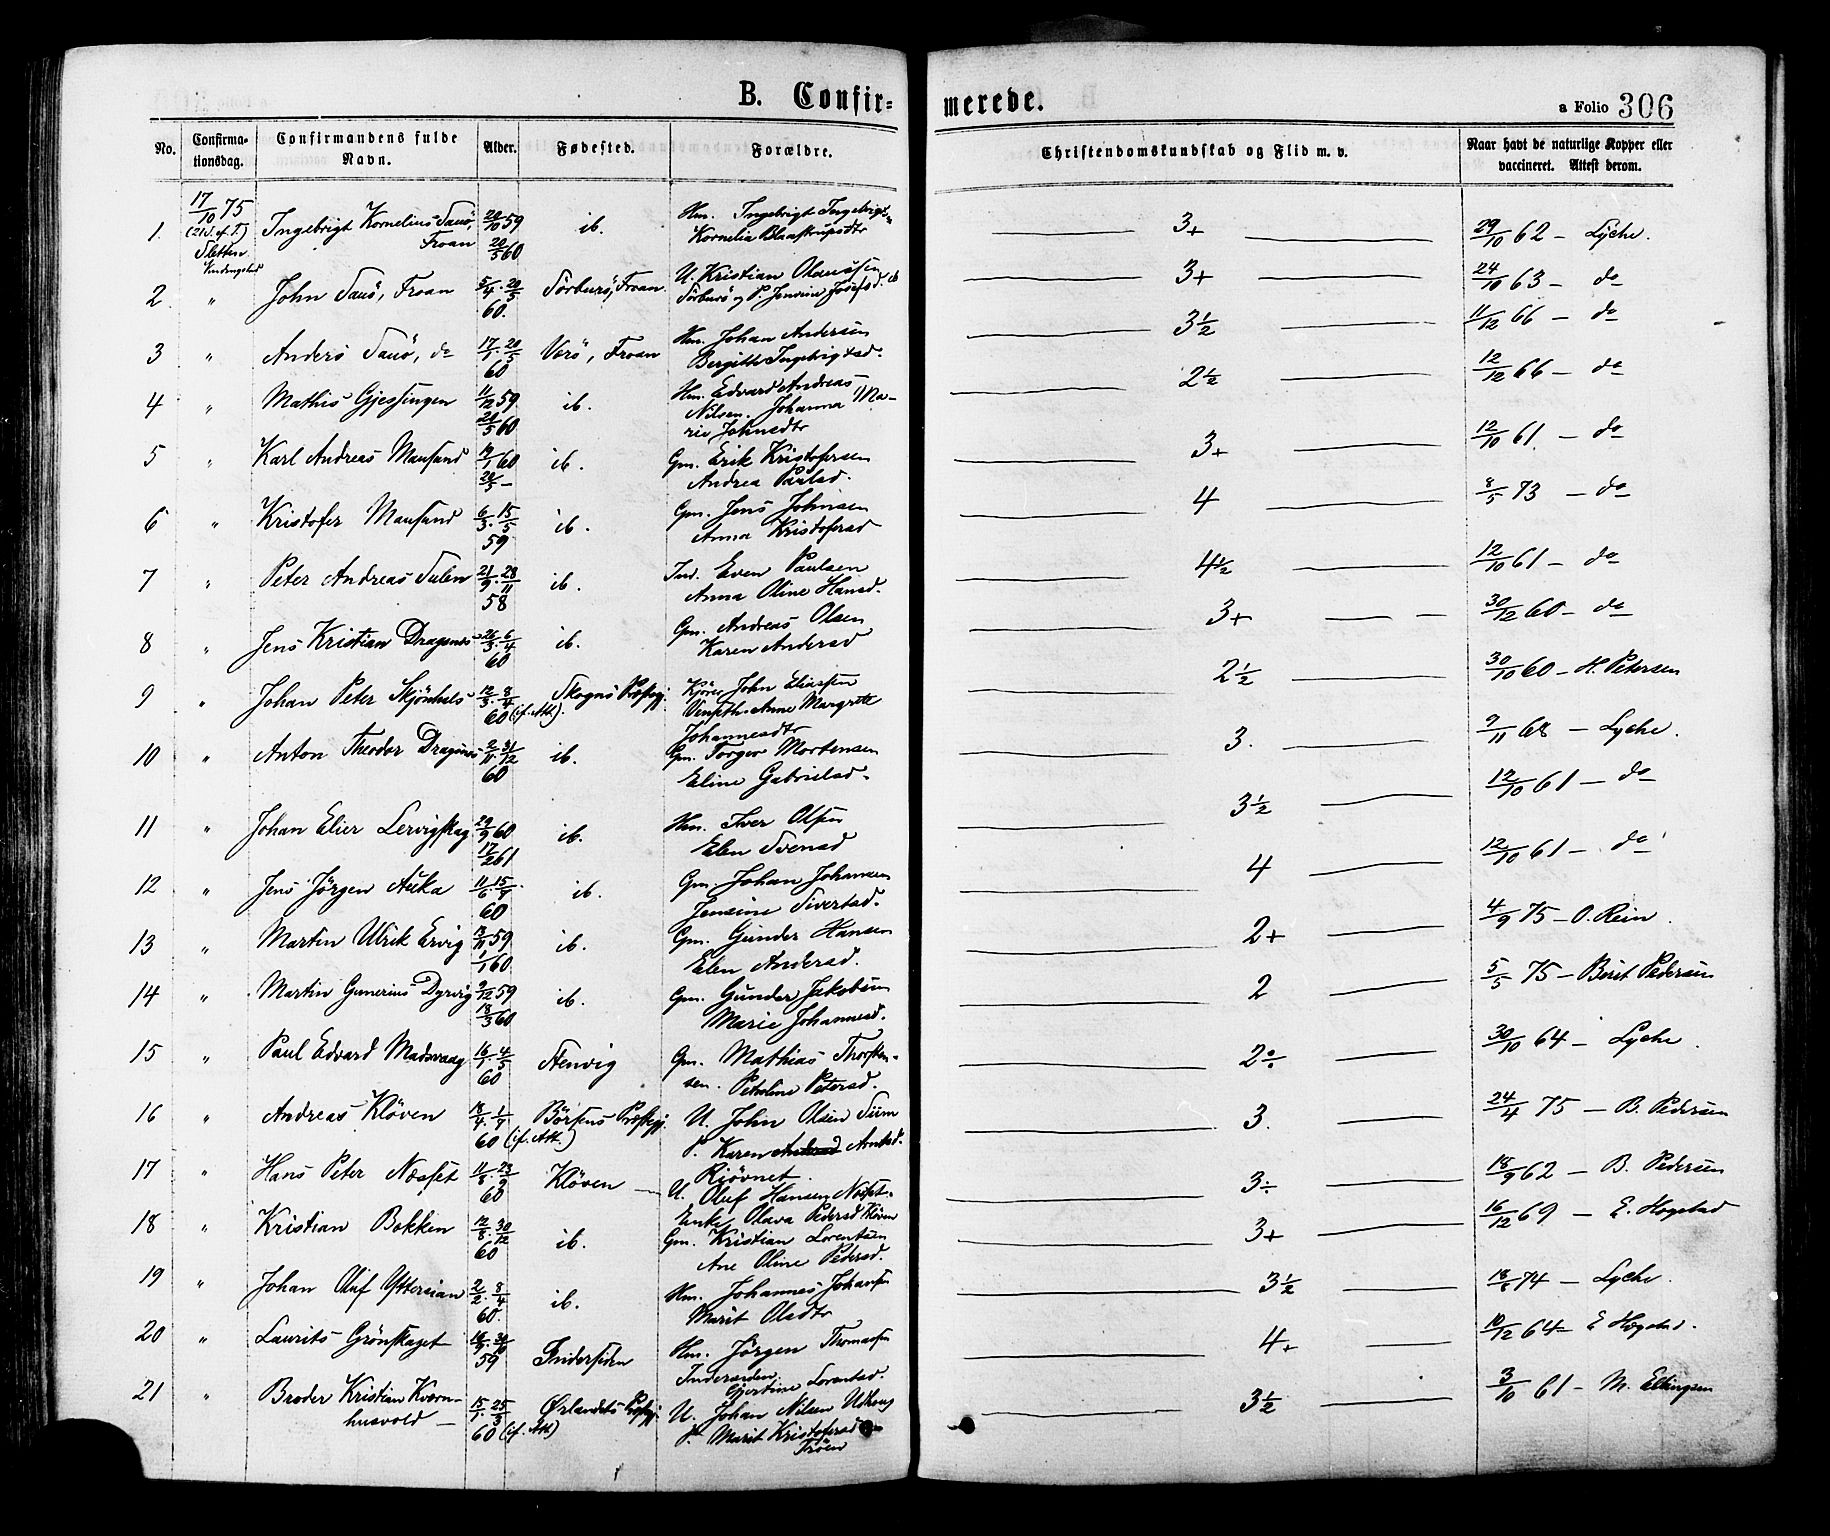 B. Confir=
merede.
a Folio 306
No.
Confirma-
tionsdag.
Confirmandens fulde
Navn.
Alder.
Fødested.
Forældre.
Christendomskundskab og Flid m. v.
Naar havt de naturlige Kopper eller
vaccineret. Attest derom.
17/10 75
(21 S. ef. T.)
Sletten
1. Ingebrigt Kornelius Sauö, 20/10 59 ib. Hm. Ingebrigt Ingebrigts- 3+ 29/10 62 – Lyche.
Froan 20/5 60 Kornelia Blaastrupsdtr
2. " John Sauö, Froan 5/4. 20/5 Sörburö, Froan U. Kristian Olaussen 3+ 24/10 63 – do
60. Sörburö og P. Jensine Josefsd. ib
3 " Anders Sauö, do 17/1. 20/5 Verö, Froan Hm. Johan Andersen 3½ 11/12 66 – do
60 Bergitte Ingebrigtsd.
4 " Mathis Gjessingen 11/12 59 ib. Hm. Edvard Andreas 2½ 12/12 66 – do
20/5 60 Nilsen. Johanna Ma-
rie Johnsdtr
5 " Karl Andreas Mausund 60 ib. Gm. Erik Kristofersen 3+ 12/10 61. – do
20/5 – Andrea Paulsd.
6 " Kristofer Mausund 6/3. 15/5 ib. Gm. Jens Johnsen 4 8/5 73 – do
59 Anna Kristofersd
7 " Peter Andreas Sulen 21/9. 28/11 ib. Ind. Even Paulsen 4½ 12/10 61 – do
58 Anna Oline Hansd.
8 " Jens Kristian Dragsnes 26/3. 6/4 ib. Gm. Andreas Olsen 3+ 30/12 60 – do
60 Karen Andersd
9 " Johan Peter Skjönhals 12/3. 8/4 Skogns Præstegj. John Eliassen 2½ 30/10 60 – H. Petersen
60 (if. Att.). Anne Margrete
Johannesdtr
10 " Anton Theodor Dragsnes 2/11. 31/12 ib. Gm. Torger Mortensen 3. 9/11 68 – Lyche.
60 Eline Gabrielsd.
11 " Johan Elier Lervigskag 29/9 60 ib. Hm. Iver Olsen 3½ 12/10 61 – do
17/2 61 Elen Svensd
12 " Jens Jörgen Auka 11/6. 15/7 ib. Gm. Johan Johansen 4 12/10 61 – do
60 Jensine Sivertsd.
13 " Martin Ulrik Ervig 13/11 59 ib. Gm. Gunder Hansen 2+ 4/9 75 – O. Rein.
1/1 60 Elen Andersd.
14 " Martin Gunerius Dyrvig 9/12 59 ib. Gm. Gunder Jakobsen 2 5/5 75 – Berit Pedersen
18/3 60 Marie Johannesd.
15 " Paul Edvard Madsvaag 16/1. 4/5 Stenvig Gm. Mathias Thorsten- 2÷ 30/10 64 – Lyche
60 sen. Petroline Petersd.
16 " Andreas Klöven 18/4. 1/7 Börsens Præstegj. U. John Olsen Siim 3. 24/4 75 – B. Pedersen
60 (if. Att.) P. Karen Arntsd.
17 " Hans Peter Næsset 11/8. 23/9 Klöven U. Oluf Hansen Næsset. 3÷ 18/9 62 – B. Pedersen
60 Enke Olava Pedersd Klöven
18 " Kristian Bokken 12/8. 30/12 ib. Gm. Kristian Lorentsen 3+ 16/12 69 – E. Hogstad
60 Ane Oline Pedersd.
19 " Johan Oluf Yttersian 2/2. 8/4 ib. Hm. Johannes Johansen 3½ 18/8 74 – Lyche.
60. Marit Olsdtr
20 " Laurits Grönskaget Indersiden Hm. Jörgen Thomassen 4+ 10/12 64 – E Hogstad.
59 Gjertine Lorentsd.
21 " Broder Kristian Kvern- 15/1. 25/3 Ørlandets Præstegj. U. Johan Nilsen 3½ 3/10 61 – M. Ellingsen
husvold – 60 (if. Att) P. Marit Kristofersd